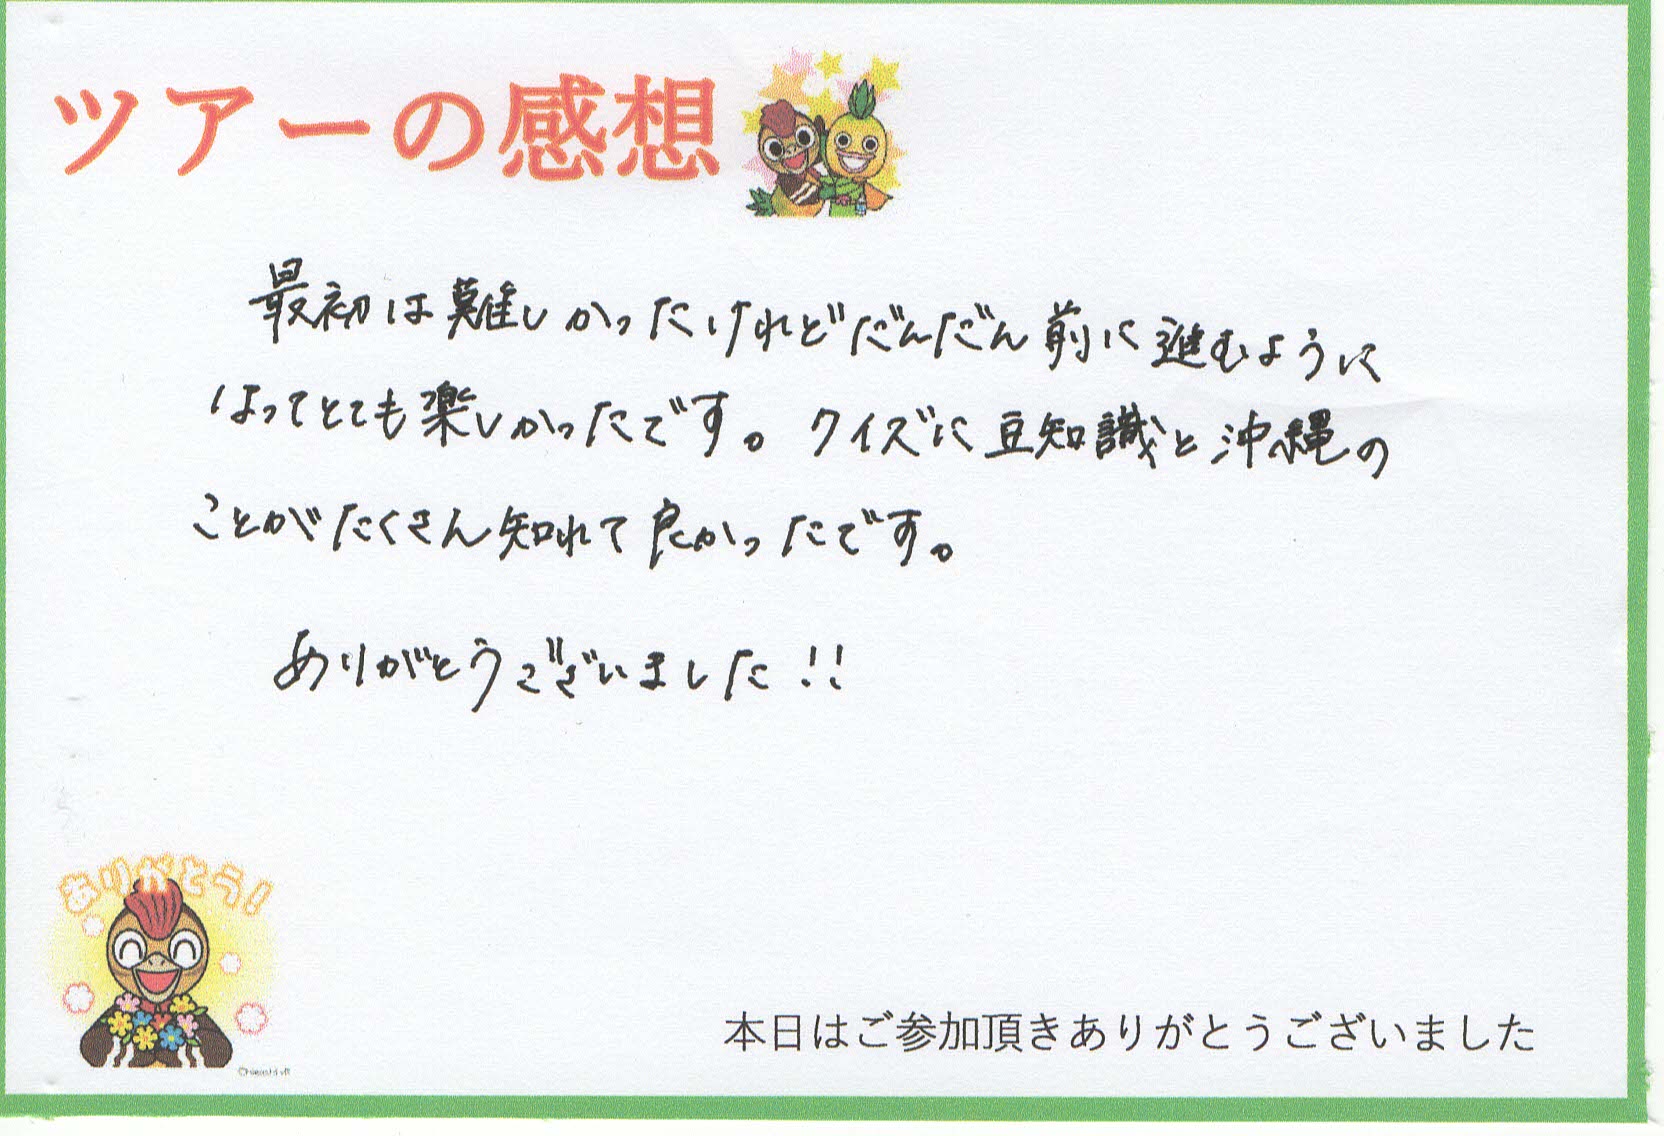 ツアーの感想
最初は難しかったけれどだんだん前に進むように
なってとても楽しかったです。クイズに豆知識と沖縄の
ことがたくさん知れて良かったです。
ありがとうございました!!
ありがとう!
本日はご参加頂きありがとうございました